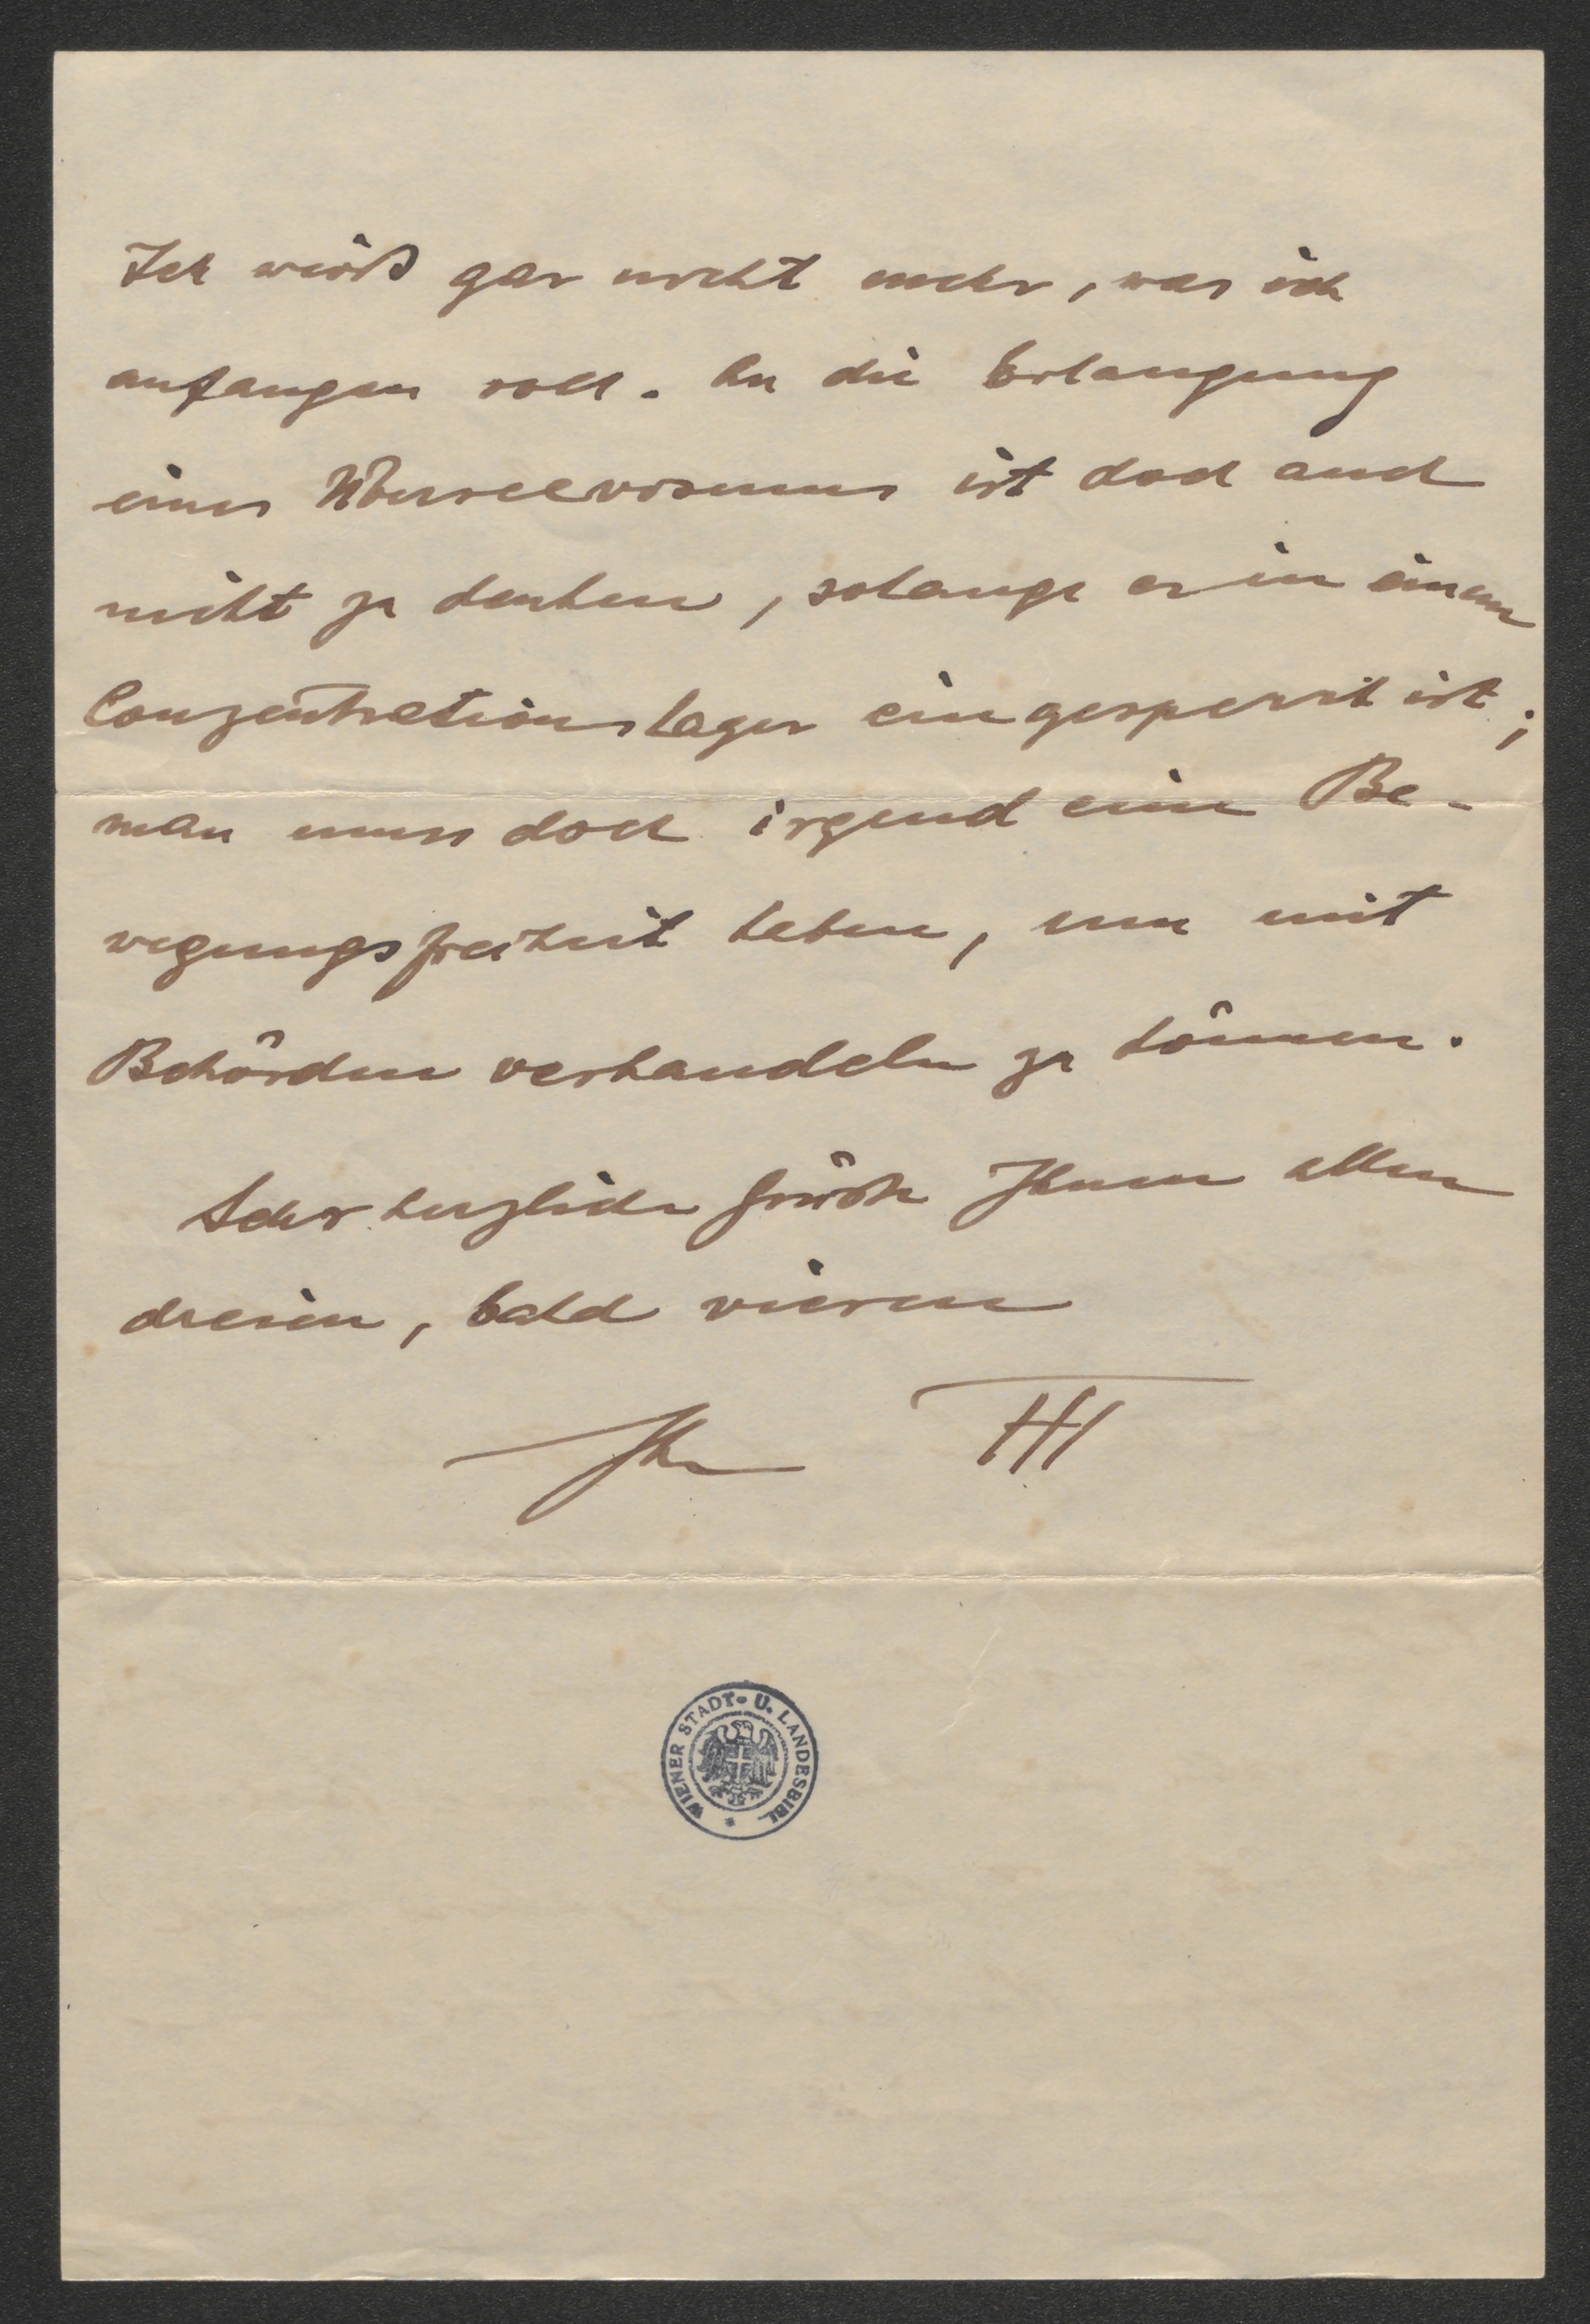 Ich weiß gar nicht mehr, was ich
anfangen soll. An die Erlangung
eines Überseevisums ist doch auch
nicht zu denken, solange er in einem
Conzentrationslager eingesperrt ist;
man muss doch irgend eine Be-
wegungsfreiheit haben, um mit
Behörden verhandeln zu können.
Sehr herzliche Grüße Ihnen allen
dreien, bald vieren
Ihr
WIENER STADT- U. LANDESBIBL. *